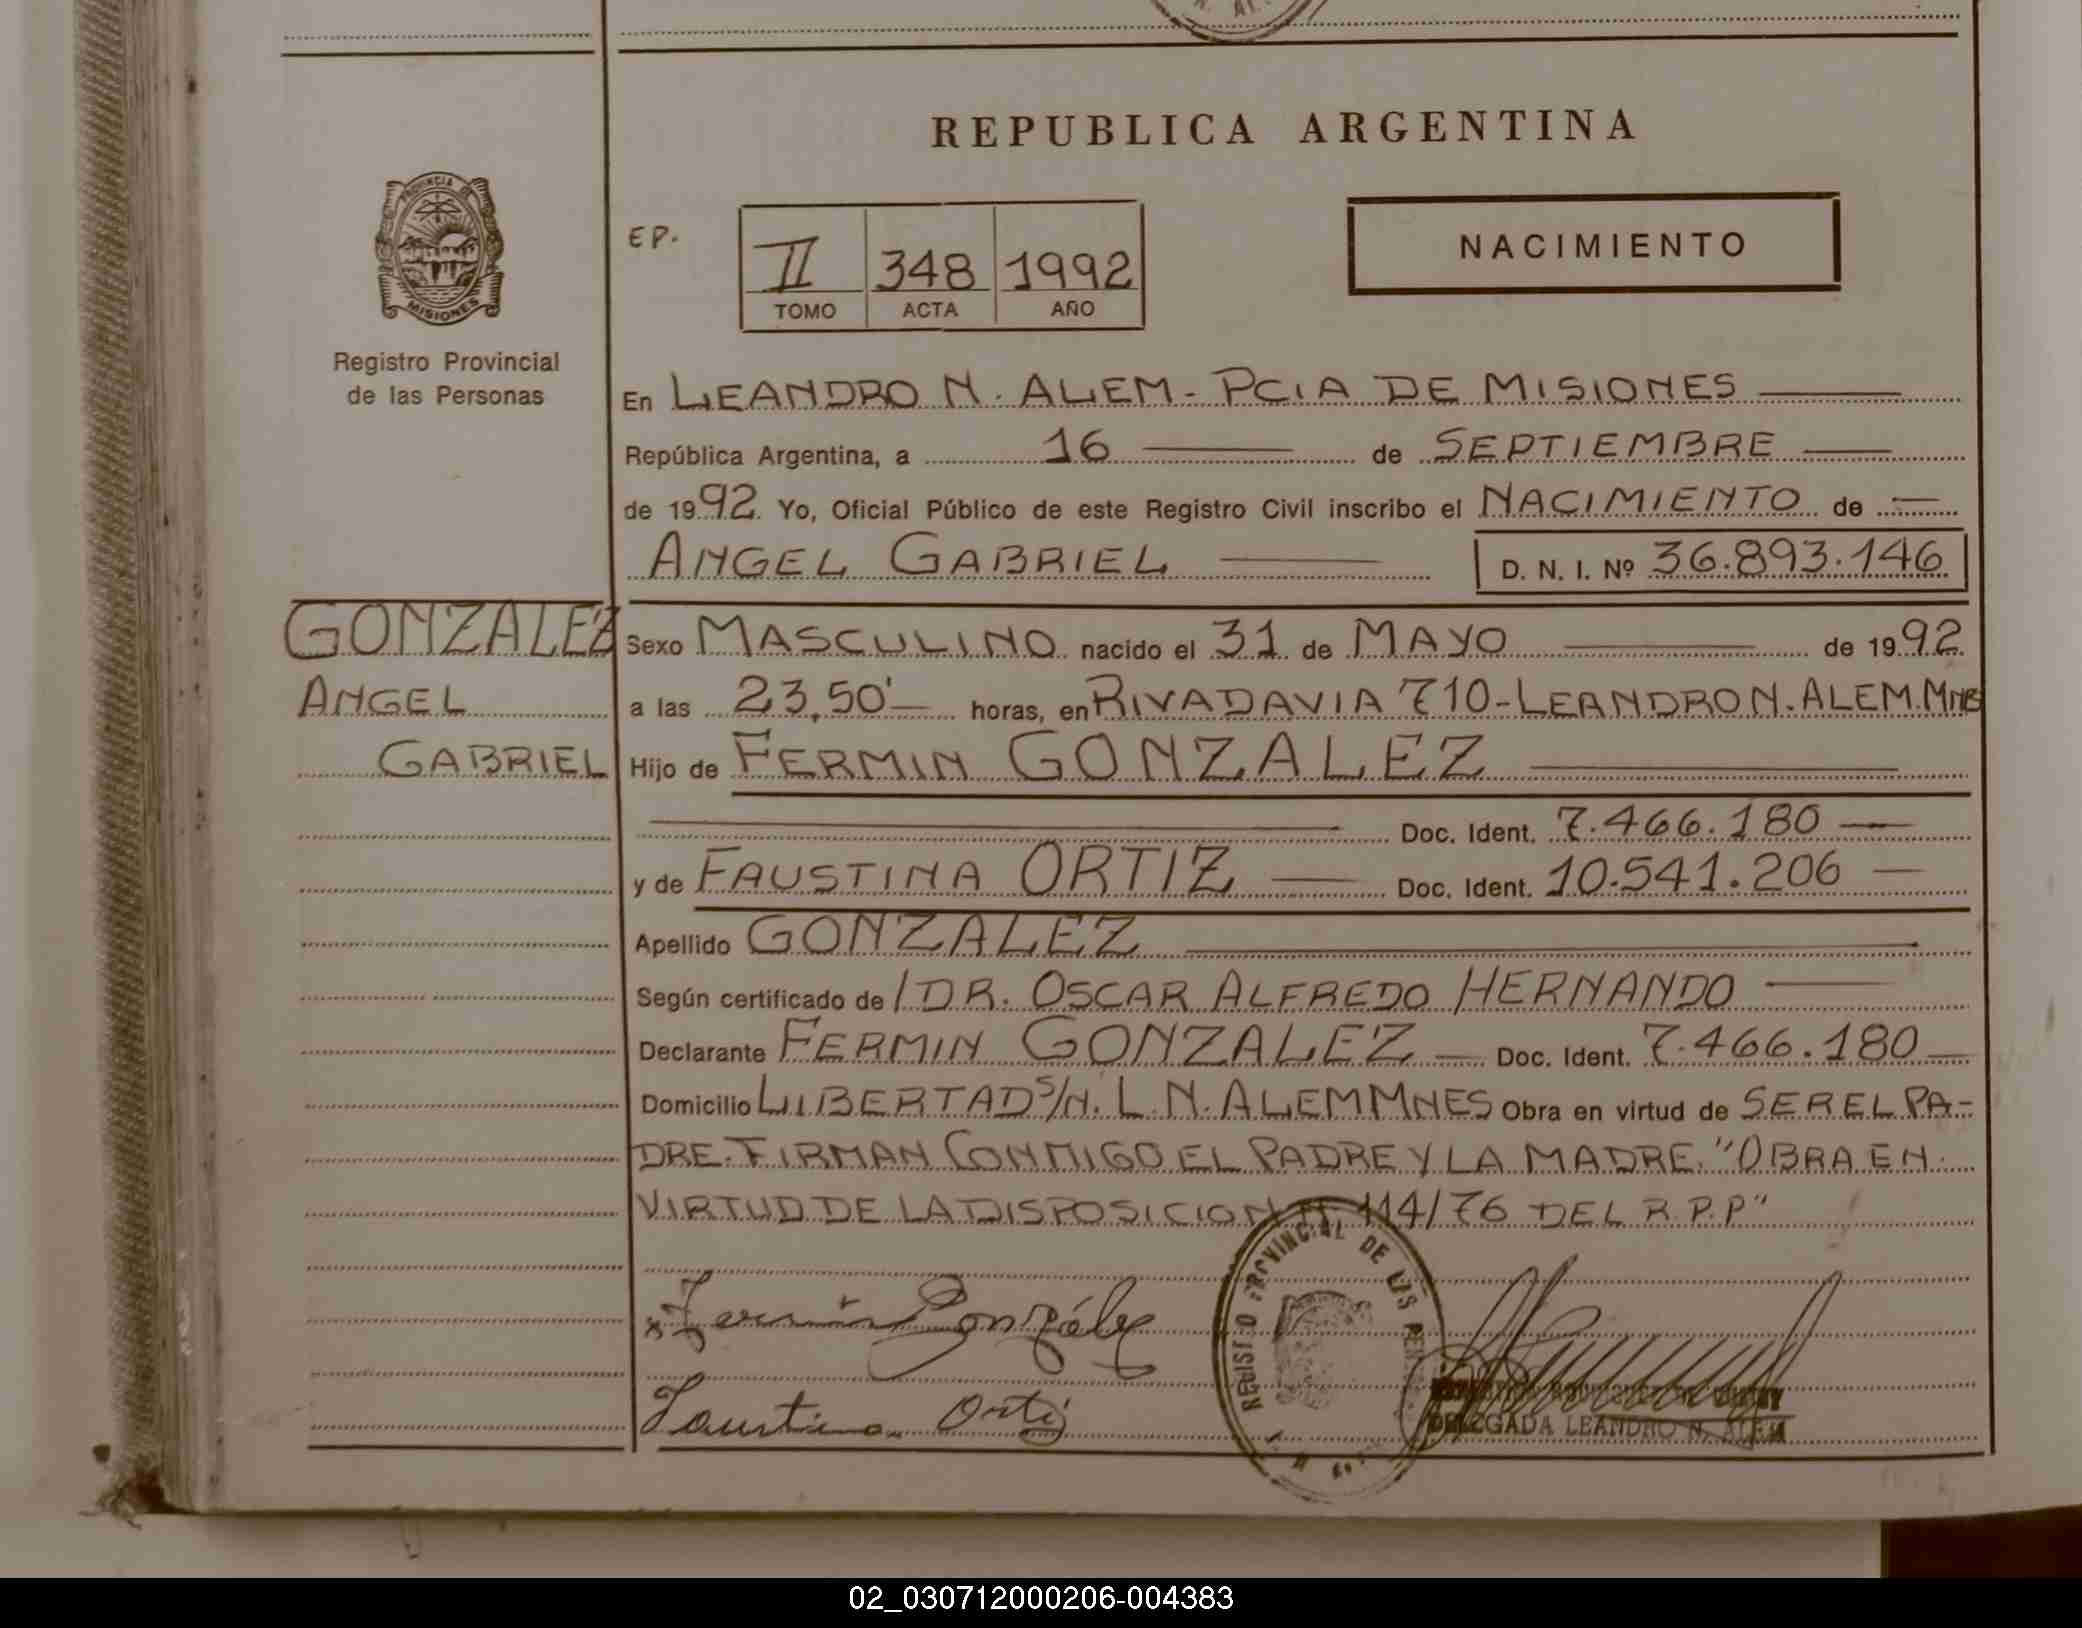 REPUBLICA ARGENTINA
PROVINCIA DE
MISIONES
Registro Provincial
de las Personas
EP.
II 348 1992
TOMO ACTA AÑO
NACIMIENTO
En LEANDRO N. ALEM - PCIA DE MISIONES
República Argentina, a 16 de SEPTIEMBRE
de 1992. Yo, Oficial Público de este Registro Civil inscribo el NACIMIENTO de
ANGEL GABRIEL D. N. I. Nº 36.893.146
GONZALEZ
ANGEL
GABRIEL
Sexo MASCULINO nacido el 31 de MAYO de 1992
a las 23,50' horas, en RIVADAVIA 710 - LEANDRO N. ALEM. MNES
Hijo de FERMIN GONZALEZ
Doc. Ident. 7.466.180
y de FAUSTINA ORTIZ Doc. Ident. 10.541.206
Apellido GONZALEZ
Según certificado de / DR. OSCAR ALFREDO HERNANDO
Declarante FERMIN GONZALEZ Doc. Ident. 7.466.180
Domicilio LIBERTAD S/N. L. N. ALEM MNES Obra en virtud de SER EL PA-
DRE. FIRMAN CONMIGO EL PADRE Y LA MADRE. "OBRA EN
VIRTUD DE LA DISPOSICION Nº 114/76 DEL R.P.P"
x Fermín González
Faustina Ortiz
REGISTRO PROVINCIAL DE LAS
DELEGADA LEANDRO N. ALEM
02_030712000206-004383